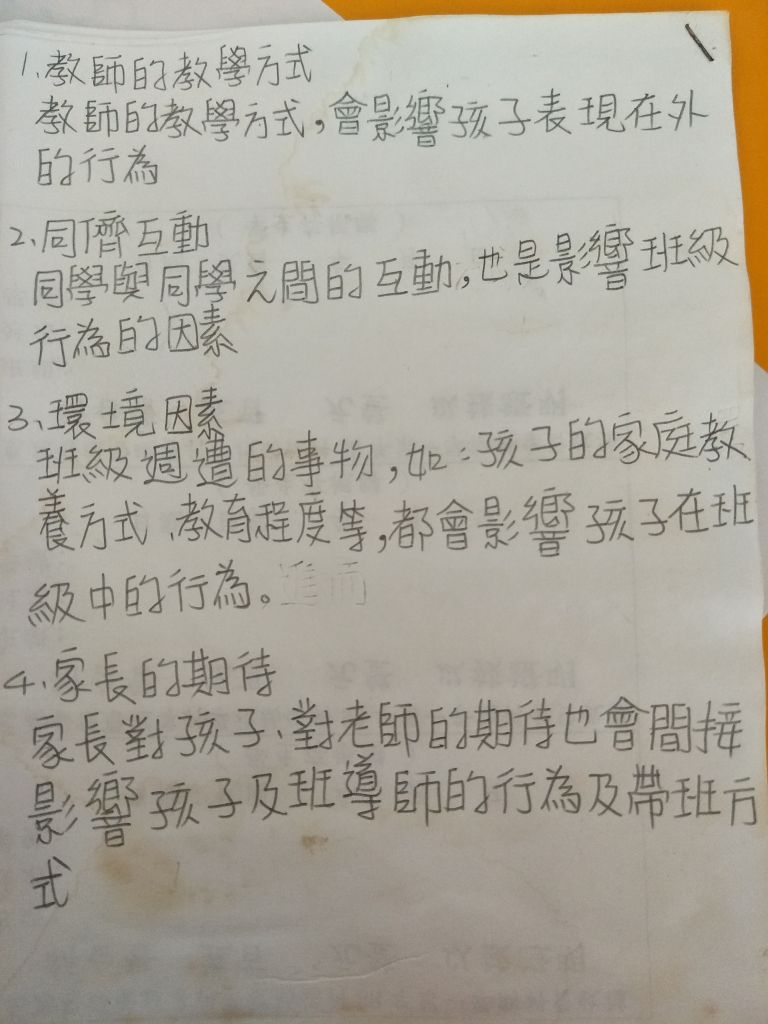 1、教師的教學方式
教師的教學方式,會影響孩子表現在外
的行為
2、同儕互動
同學與同學之間的互動,也是影響班級
行為的因素
3、環境因素
班級週遭的事物,如:孩子的家庭教
養方式、教育程度等,都會影響孩子在班
級中的行為。進而
4、家長的期待
家長對孩子、對老師的期待也會間接
影響孩子及班導師的行為及帶班方
式